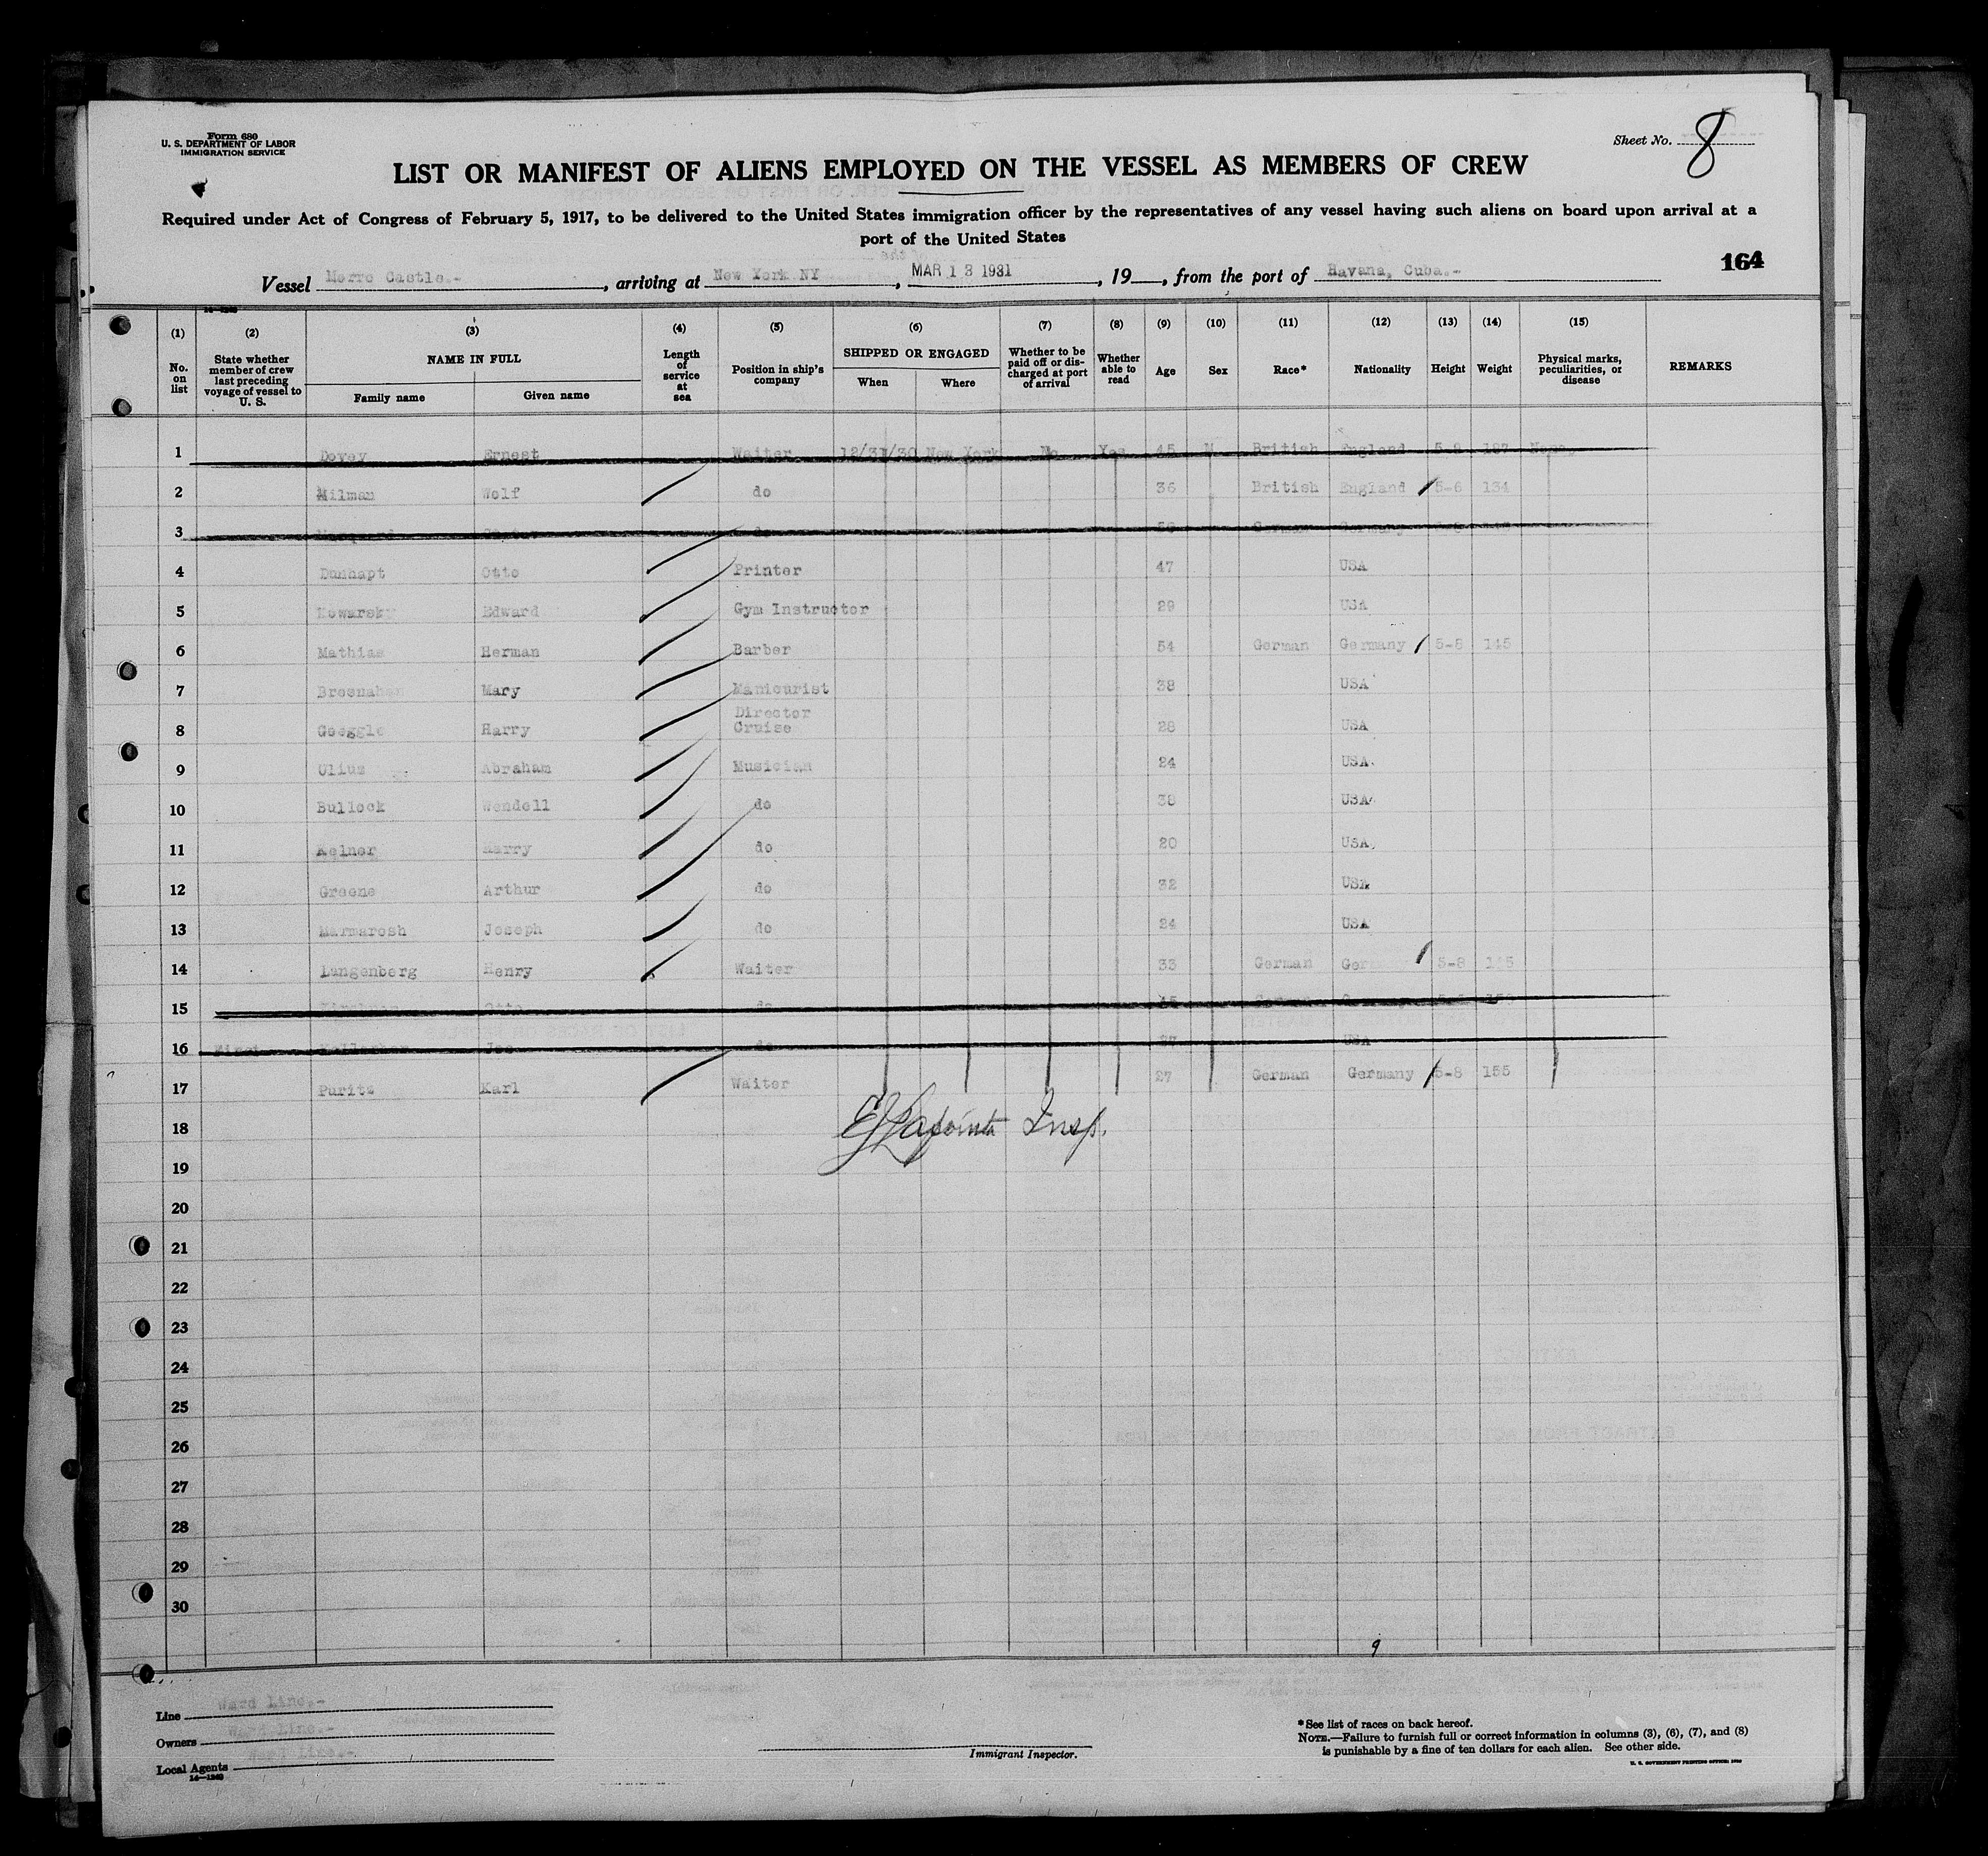 Form 680
U. S. DEPARTMENT OF LABOR
IMMIGRATION SERVICE
Sheet No. 8
LIST OR MANIFEST OF ALIENS EMPLOYED ON THE VESSEL AS MEMBERS OF CREW
Required under Act of Congress of February 5, 1917, to be delivered to the United States immigration officer by the representatives of any vessel having such aliens on board upon arrival at a
port of the United States
164
Vessel Morro Castle.- , arriving at New York NY , MAR 13 1931 , 19 , from the port of Havana, Cuba.-
14—1240
(1) (2) (3) (4) (5) (6) (7) (8) (9) (10) (11) (12) (13) (14) (15)
No. on list
State whether member of crew last preceding voyage of vessel to U. S.
NAME IN FULL
Family name Given name
Length of service at sea
Position in ship's company
SHIPPED OR ENGAGED
When Where
Whether to be paid off or discharged at port of arrival
Whether able to read
Age Sex Race* Nationality Height Weight
Physical marks, peculiarities, or disease
REMARKS
1 Dovey Ernest Waiter 12/31/30 New York No Yes 45 M British England 5-8 187 None
2 Milman Wolf do 36 British England 5-6 134
3 do German Germany
4 Dunhapt Otto Printer 47 USA
5 Kowarsky Edward Gym Instructor 29 USA
6 Mathias Herman Barber 54 German Germany 5-8 145
7 Brosnahan Mary Manicurist 38 USA
8 Goeggle Harry Director Cruise 28 USA
9 Ulius Abraham Musician 24 USA
10 Bullock Wendell do 38 USA
11 Kelner Harry do 20 USA
12 Greene Arthur do 32 USA
13 Marmarosh Joseph do 24 USA
14 Langenberg Henry Waiter 33 German Ger 5-8
15 Otto do
16 First Joe do USA
17 Puritz Karl Waiter 27 German Germany 5-8 155
18
Insp.
19
20
21
22
23
24
25
26
27
28
29
30
9
Line Ward Line.-
Owners Ward Line.-
Local Agents Ward Line.-
14—1240
Immigrant Inspector.
*See list of races on back hereof.
NOTE.—Failure to furnish full or correct information in columns (3), (6), (7), and (8)
is punishable by a fine of ten dollars for each alien. See other side.
U. S. GOVERNMENT PRINTING OFFICE: 1930